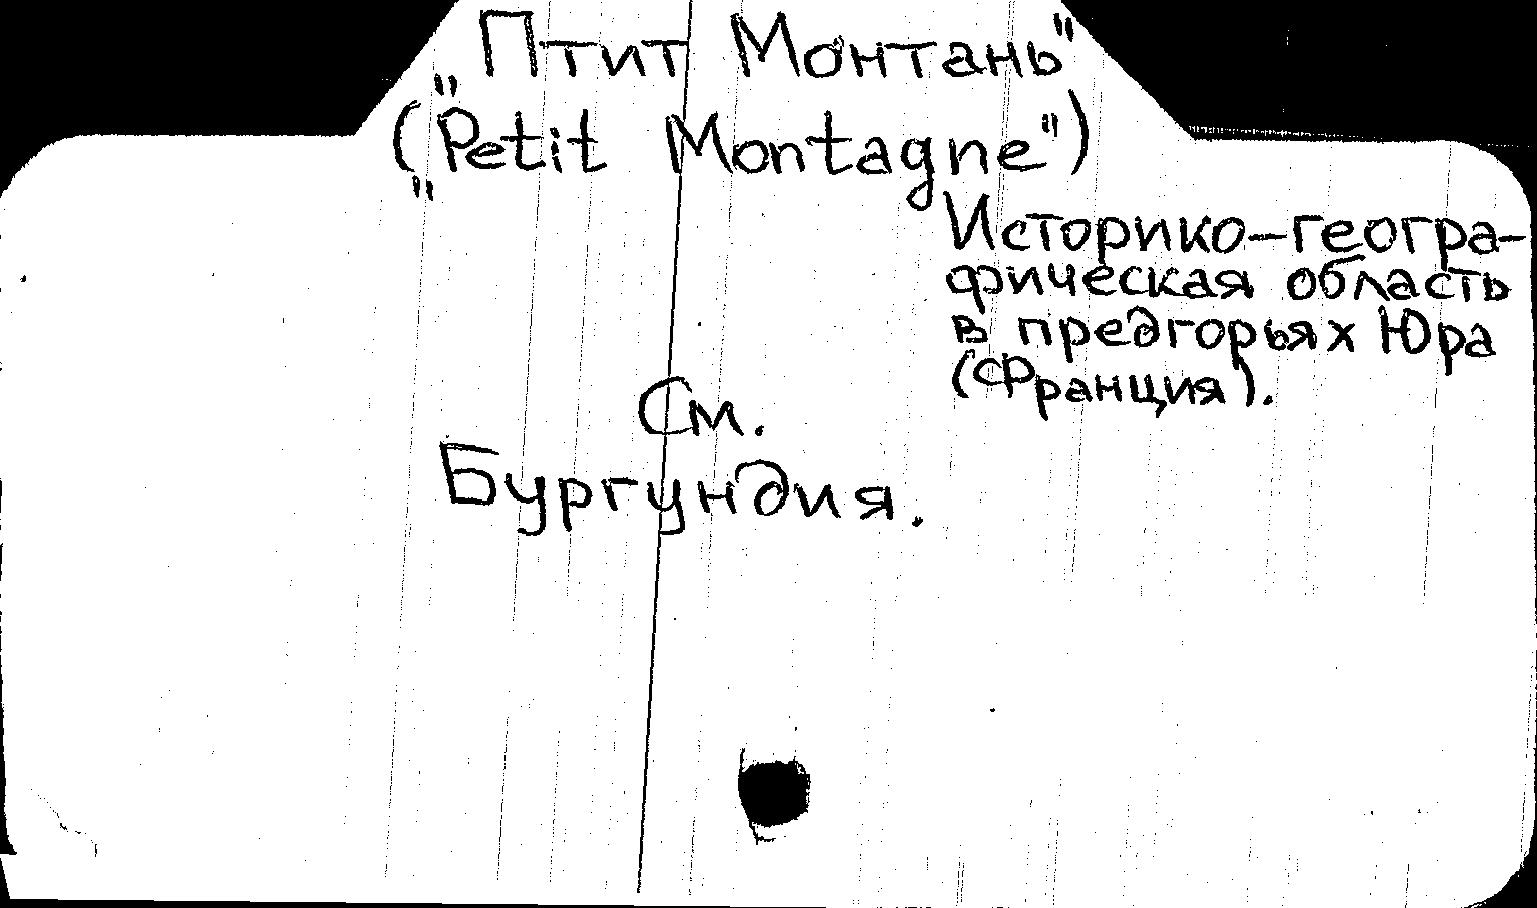 „Птит Монтань"
(„Petit Montagne")
Историко-геогра-
фическая область
в предгорьях Юра
(Франция).
См.
Бургундия.